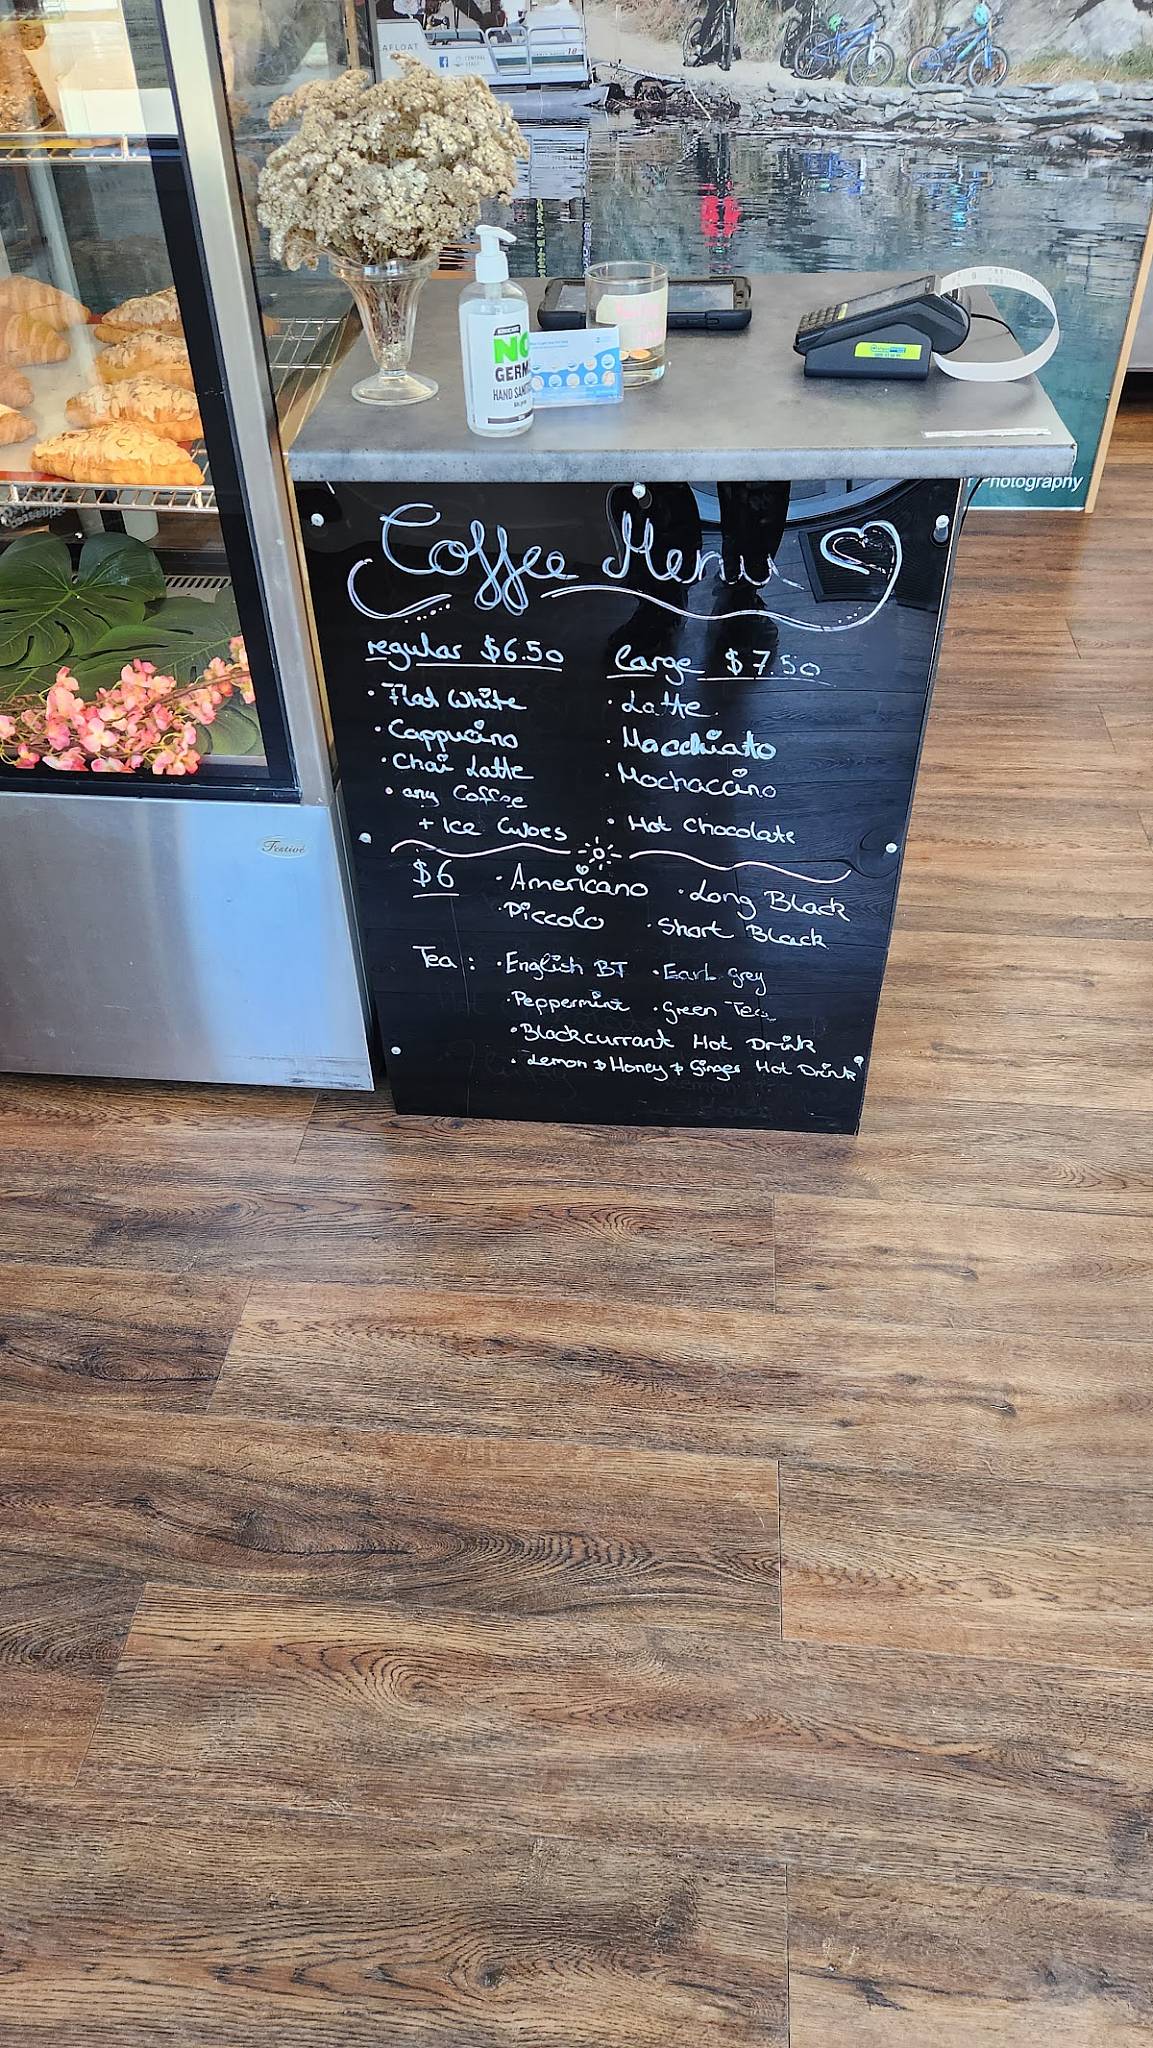 AFLOAT
CENTRAL
18
NO
GERM
HAND SANI
Photography
Coffee Menu
regular $6.50
large $7.50
• Flat White
• Latte
• Cappucino
• Macchiato
• Chai Latte
• Mochaccino
• any Coffee
+ Ice Cubes
• Hot Chocolate
$6
• Americano
• Long Black
• Piccolo
• Short Black
Tea :
• English BT
• Earl Grey
• Peppermint
• Green Tea
• Blackcurrant Hot Drink
• Lemon & Honey & Ginger Hot Drink
Festive